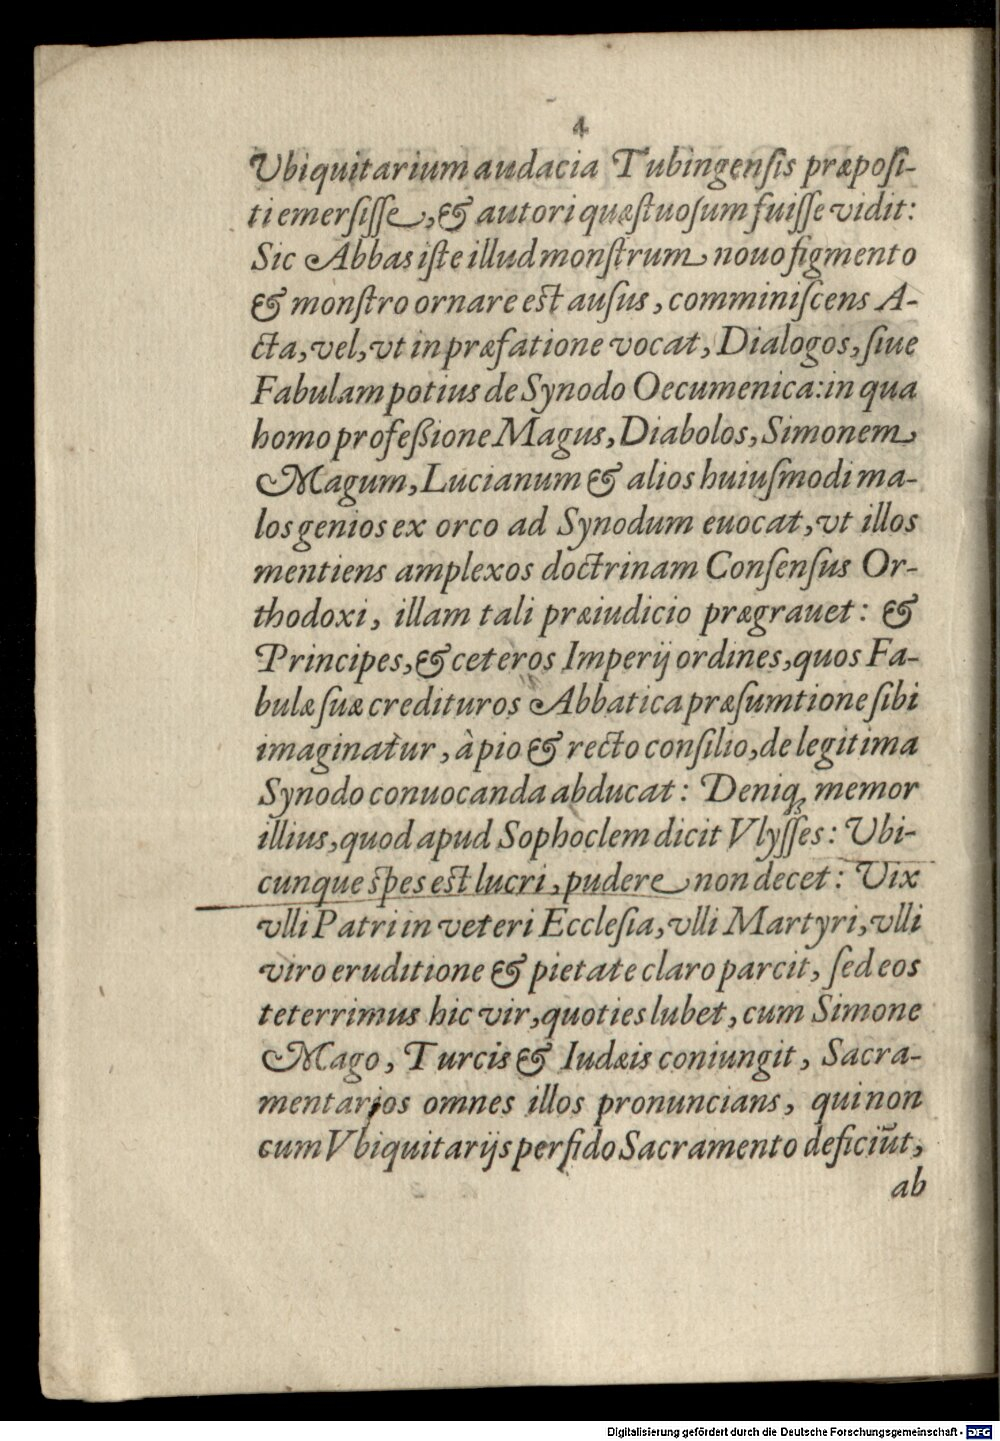 4
Vbiquitarium audacia Tubingensis præposi-
ti emersisse, & autori quæstuosum fuisse vidit:
Sic Abbas iste illud monstrum nouo figmento
& monstro ornare est ausus, comminiscens A-
cta, vel, vt in præfatione vocat, Dialogos, siue
Fabulam potius de Synodo Oecumenica: in qua
homo profeßione Magus, Diabolos, Simonem
Magum, Lucianum & alios huiusmodi ma-
los genios ex orco ad Synodum euocat, vt illos
mentiens amplexos doctrinam Consensus Or-
thodoxi, illam tali præiudicio prægrauet: &
Principes, & ceteros Imperij ordines, quos Fa-
bulæ suæ credituros Abbatica præsumtione sibi
imaginatur, à pio & recto consilio, de legitima
Synodo conuocanda abducat: Deniq; memor
illius, quod apud Sophoclem dicit Vlysses: Vbi-
cunque spes est lucri, pudere non decet: Vix
vlli Patri in veteri Ecclesia, vlli Martyri, vlli
viro eruditione & pietate claro parcit, sed eos
teterrimus hic vir, quoties lubet, cum Simone
Mago, Turcis & Iudæis coniungit, Sacra-
mentarios omnes illos pronuncians, qui non
cum Vbiquitarijs perfido Sacramento deficiūt,
ab
Digitalisierung gefördert durch die Deutsche Forschungsgemeinschaft - DFG